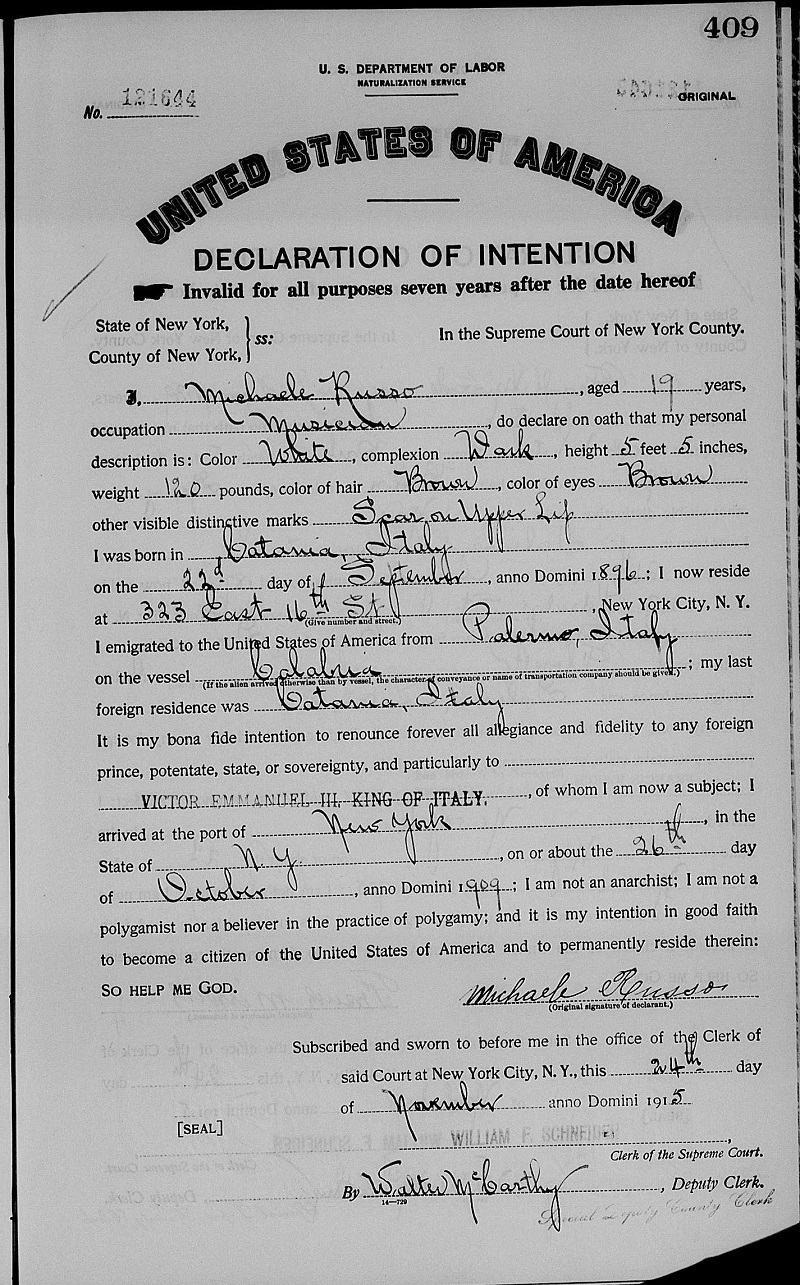 409
U. S. DEPARTMENT OF LABOR
NATURALIZATION SERVICE
No. 121644
ORIGINAL
UNITED STATES OF AMERICA
DECLARATION OF INTENTION
Invalid for all purposes seven years after the date hereof
State of New York,
County of New York, } ss:
In the Supreme Court of New York County.
I, Michaele Russo, aged 19 years,
occupation Musician, do declare on oath that my personal
description is: Color White, complexion Dark, height 5 feet 5 inches,
weight 120 pounds, color of hair Brown, color of eyes Brown
other visible distinctive marks Scar on Upper Lip
I was born in Catania, Italy
on the 22d day of September, anno Domini 1896; I now reside
at 323 East 16th St, New York City, N. Y.
(Give number and street.)
I emigrated to the United States of America from Palermo, Italy
on the vessel Calabria; my last
(If the alien arrived otherwise than by vessel, the character of conveyance or name of transportation company should be given.)
foreign residence was Catania, Italy
It is my bona fide intention to renounce forever all allegiance and fidelity to any foreign
prince, potentate, state, or sovereignty, and particularly to
VICTOR EMMANUEL III, KING OF ITALY, of whom I am now a subject; I
arrived at the port of New York, in the
State of N.Y., on or about the 26th day
of October, anno Domini 1909; I am not an anarchist; I am not a
polygamist nor a believer in the practice of polygamy; and it is my intention in good faith
to become a citizen of the United States of America and to permanently reside therein:
SO HELP ME GOD.
Michaele Russo
(Original signature of declarant.)
Subscribed and sworn to before me in the office of the Clerk of
said Court at New York City, N. Y., this 24th day
of November anno Domini 1915
[SEAL]
WILLIAM F. SCHNEIDER,
Clerk of the Supreme Court.
By Walter McCarthy, Deputy Clerk.
14—729
Special Deputy County Clerk